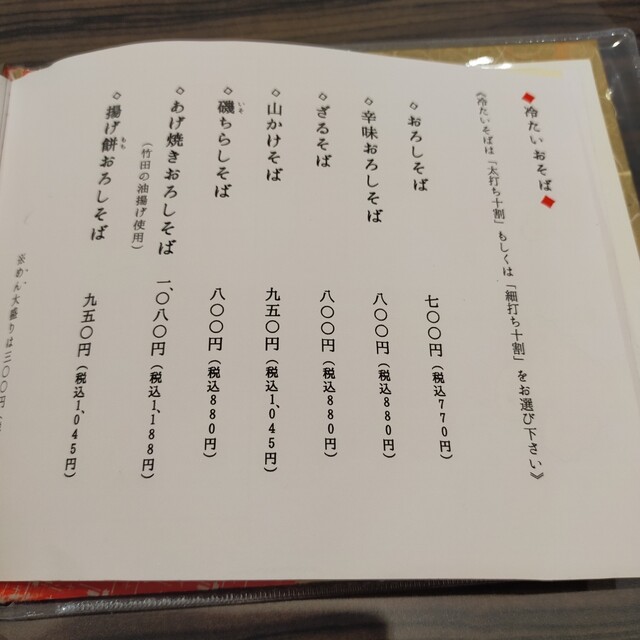 ◆冷たいおそば◆
《冷たいそばは「太打ち十割」もしくは「細打ち十割」をお選び下さい》
◇おろしそば 七〇〇円(税込770円)
◇辛味おろしそば 八〇〇円(税込880円)
◇ざるそば 八〇〇円(税込880円)
◇山かけそば 九五〇円(税込1,045円)
いそ
◇磯ちらしそば 八〇〇円(税込880円)
◇あげ焼きおろしそば 一、〇八〇円(税込1,188円)
(竹田の油揚げ使用)
もち
◇揚げ餅おろしそば 九五〇円(税込1,045円)
※めん大盛りは三〇〇円